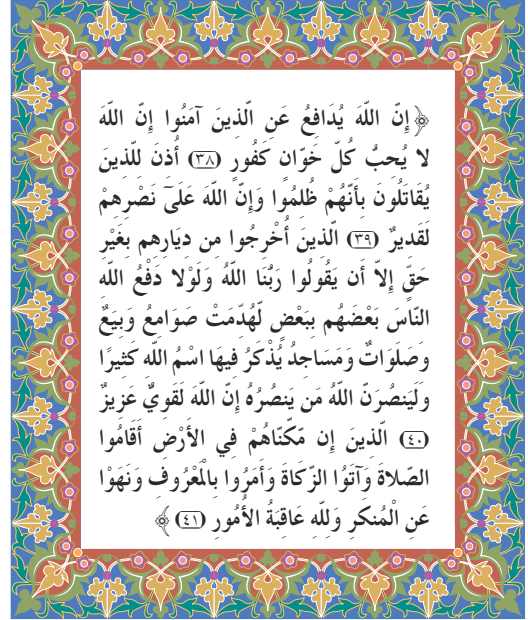 ﴿ إِنَّ اللَّهَ يُدَافِعُ عَنِ الَّذِينَ آمَنُوا إِنَّ اللَّهَ
لا يُحِبُّ كُلَّ خَوَّانٍ كَفُورٍ (٣٨) أُذِنَ لِلَّذِينَ
يُقَاتَلُونَ بِأَنَّهُمْ ظُلِمُوا وَإِنَّ اللَّهَ عَلَىٰ نَصْرِهِمْ
لَقَدِيرٌ (٣٩) الَّذِينَ أُخْرِجُوا مِن دِيَارِهِم بِغَيْرِ
حَقٍّ إِلاَّ أَن يَقُولُوا رَبُّنَا اللَّهُ وَلَوْلا دَفْعُ اللَّهِ
النَّاسَ بَعْضَهُم بِبَعْضٍ لَّهُدِّمَتْ صَوَامِعُ وَبِيَعٌ
وَصَلَوَاتٌ وَمَسَاجِدُ يُذْكَرُ فِيهَا اسْمُ اللَّهِ كَثِيرًا
وَلَيَنصُرَنَّ اللَّهُ مَن يَنصُرُهُ إِنَّ اللَّهَ لَقَوِيٌّ عَزِيزٌ
(٤٠) الَّذِينَ إِن مَّكَّنَّاهُمْ فِي الأَرْضِ أَقَامُوا
الصَّلاةَ وَآتَوُا الزَّكَاةَ وَأَمَرُوا بِالْمَعْرُوفِ وَنَهَوْا
عَنِ الْمُنكَرِ وَلِلَّهِ عَاقِبَةُ الأُمُورِ (٤١) ﴾